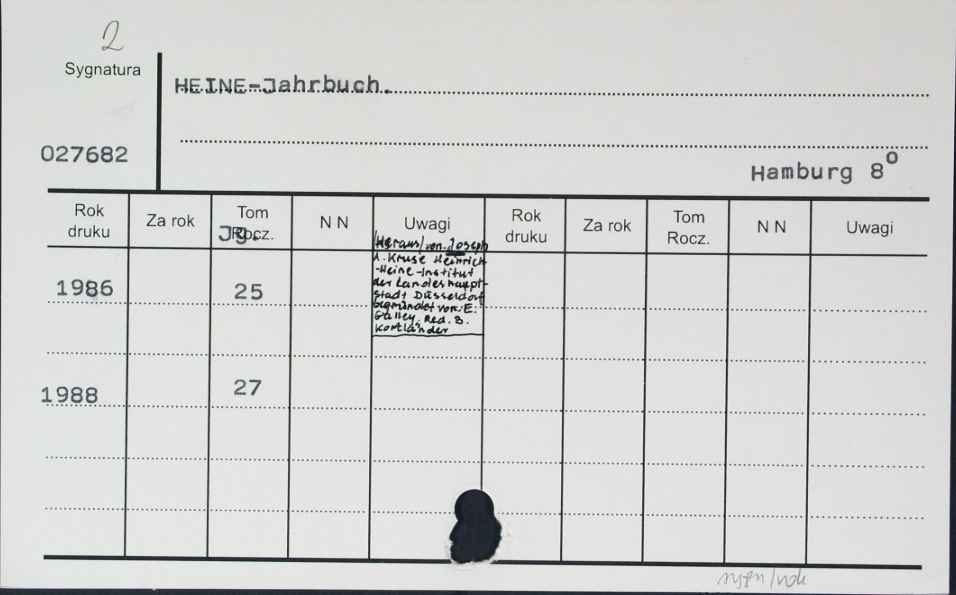 2
Sygnatura
HEINE-Jahrbuch.
027682
Hamburg 8°
Rok druku Za rok Tom Rocz. N N Uwagi Rok druku Za rok Tom Rocz. N N Uwagi
Jg.
/Heraus/von. Joseph
A. Kruse Heinrich
-Heine-Institut
der Landeshaupt-
stadt Düsseldorf
Gegründet von. E.
Galley. Red. B.
Kortländer
1986 25
1988 27